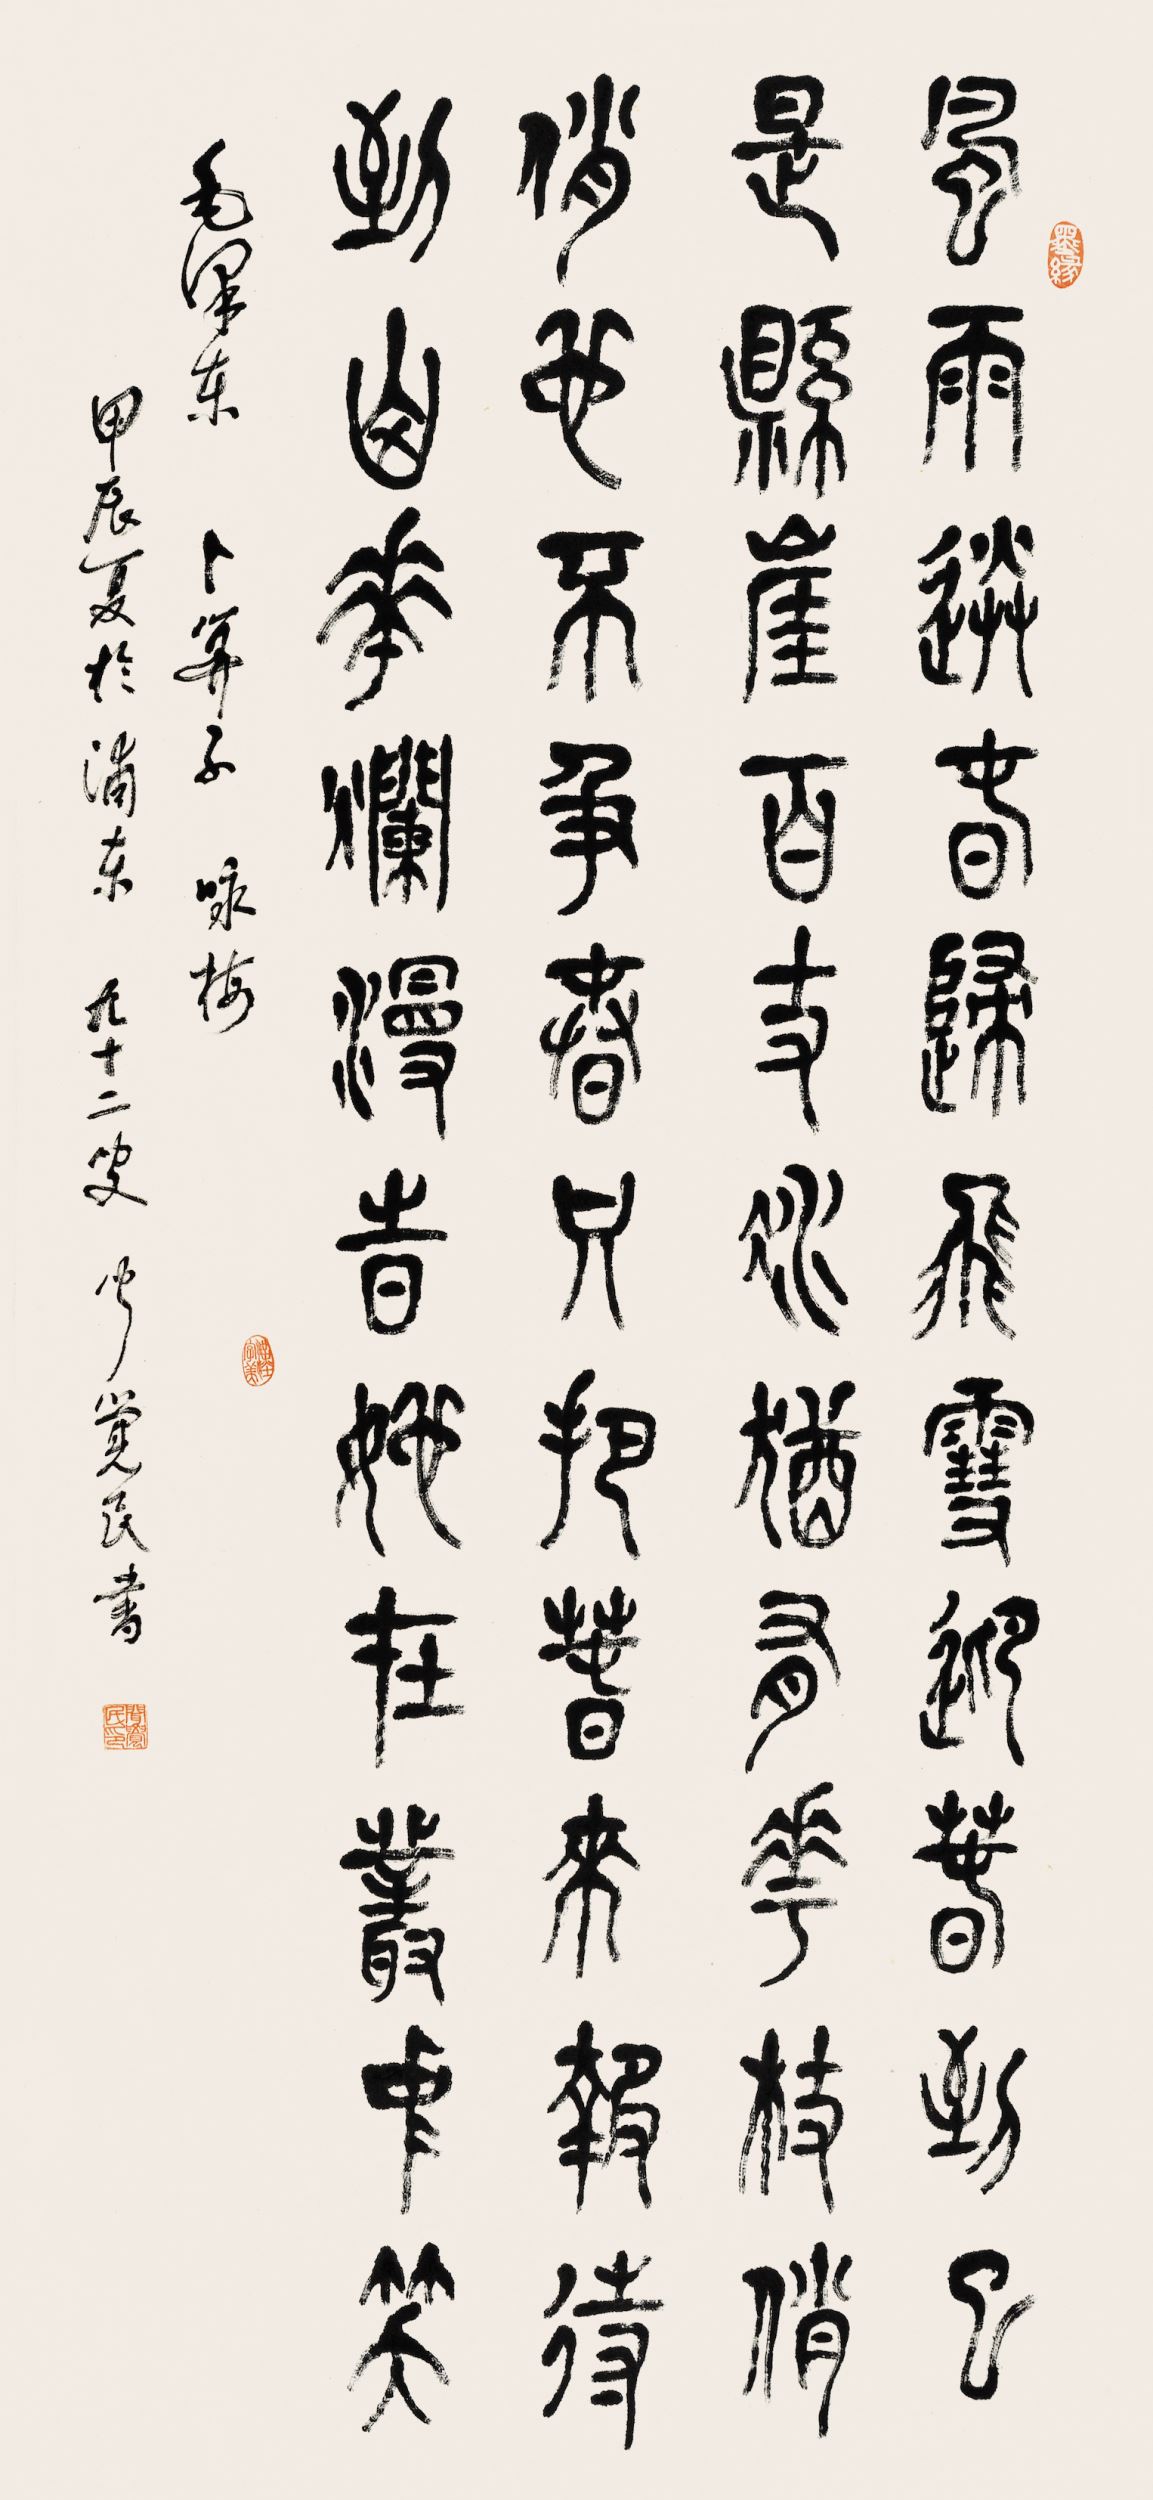 風雨送春歸飛雪迎春到已
是懸崖百丈冰猶有花枝俏
俏也不爭春只把春來報待
到山花爛漫時她在叢中笑
毛泽东 卜算子 咏梅
甲辰夏於浦东 九十二叟 闻觉民書
墨緣
聞覺民印